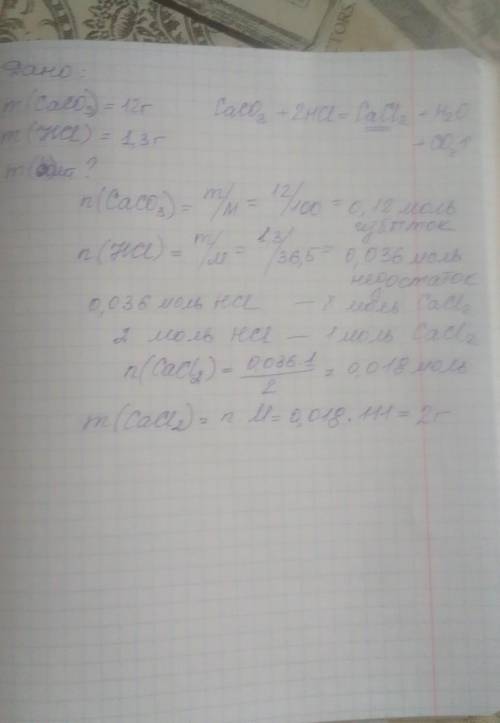 Дано:
m(CaCO₃) = 12г CaCO₃ + 2HCl = CaCl₂ + H₂O
m(HCl) = 1,3г + CO₂↑
m( ?
n(CaCO₃) = m/M = 12/100 = 0,12 моль
избыток
n(HCl) = m/M = 1,3/36,5 = 0,036 моль
недостаток
0,036 моль HCl — x моль CaCl₂
2 моль HCl — 1 моль CaCl₂
n(CaCl₂) = 0,036·1/2 = 0,018 моль
m(CaCl₂) = n M = 0,018 · 111 = 2г